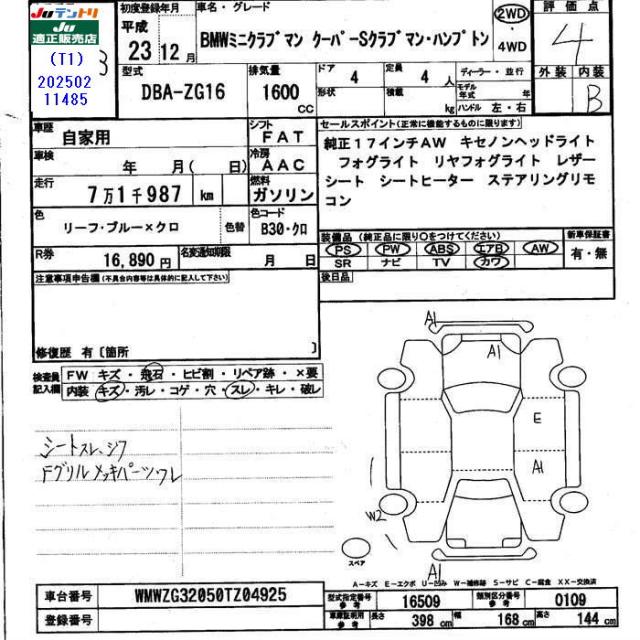 Juテントリ
Ju
適正販売店
(T1)
202502
11485
B
初度登録年月
平成
23 12 月
車名・グレード
BMWミニクラブマン クーパーSクラブマン・ハンプトン
2WD
・
4WD
評価点
4
外装 内装
B
型式
DBA-ZG16
排気量
1600
CC
ドア 4
形状
定員 4 人
積載 kg
ディーラー・並行
モデル年式 年
ハンドル 左・右
車歴
自家用
シフト
FAT
車検
年 月( 日)
冷房
AAC
走行
7万1千987 km
燃料
ガソリン
色
リーフ・ブルー×クロ
色替
色コード
B30・クロ
R券
16,890 円
名変通知期限
月 日
セールスポイント(正常に機能するものに限ります)
純正17インチAW キセノンヘッドライト
フォグライト リヤフォグライト レザー
シート シートヒーター ステアリングリモ
コン
装備品(純正品に限り〇をつけてください)
PS PW ABS エアB AW
SR ナビ TV カワ
新車保証書
有・無
後日品
注意事項申告欄(不具合内容等は具体的に記入して下さい)
修復歴 有〔箇所 〕
検査員
記入欄
FW キズ・飛石・ヒビ割・リペア跡・×要
内装 キズ・汚レ・コゲ・穴・スレ・キレ・破レ
シートスレ、シワ
Fグリルメッキパーツワレ
A1
A1
E
A1
W2
A1
スペア
A-キズ E-エクボ U-凹み W-補修跡 S-サビ C-腐食 XX-交換済
車台番号
WMWZG32050TZ04925
登録番号
型式指定番号
参考
16509
類別区分番号
参考
0109
車庫証明用
参考
長さ 398 cm
幅 168 cm
高さ 144 cm